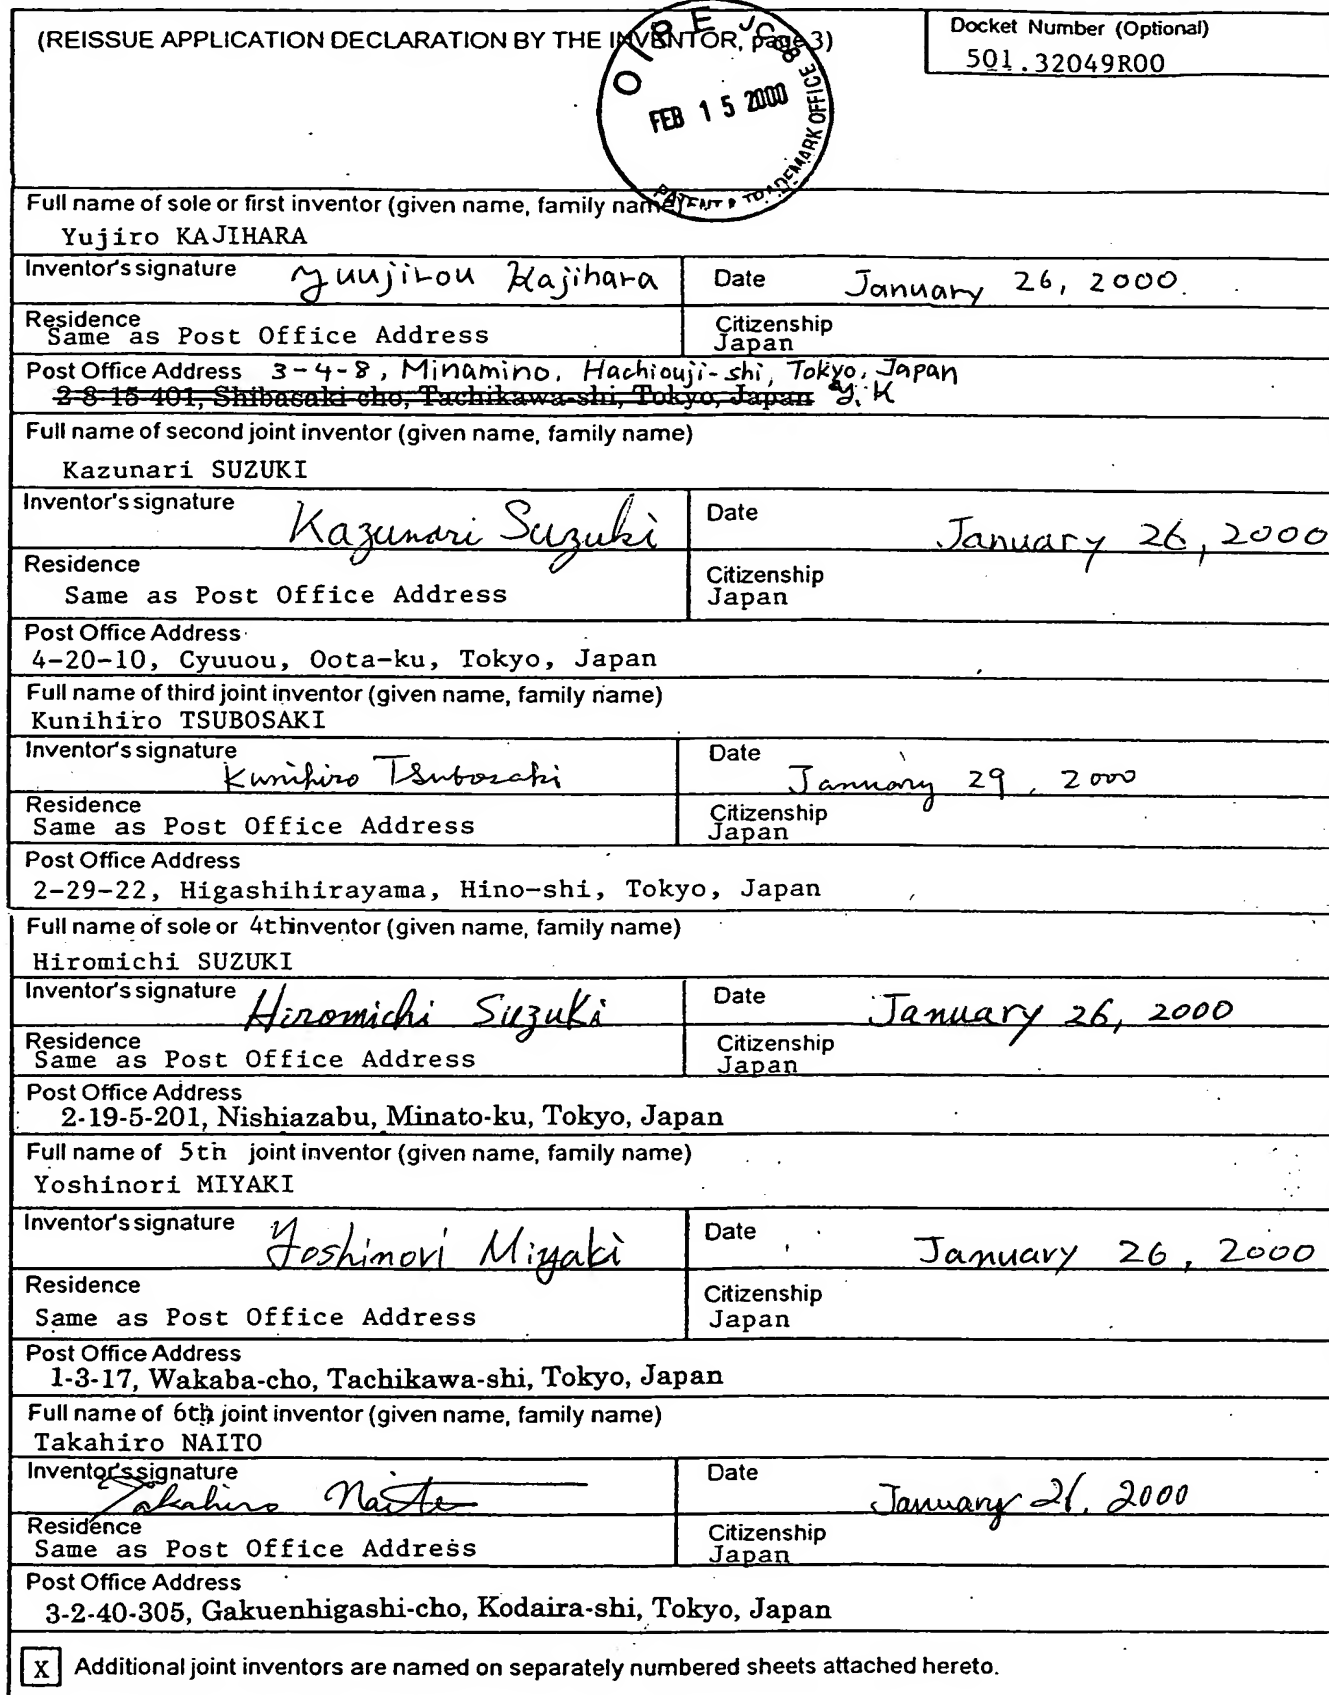 (REISSUE APPLICATION DECLARATION BY THE INVENTOR, page 3)
Docket Number (Optional)
501.32049R00
OIPE JC08
FEB 15 2000
PATENT & TRADEMARK OFFICE
Full name of sole or first inventor (given name, family name)
Yujiro KAJIHARA
Inventor's signature Yuujirou Kajihara Date January 26, 2000.
Residence
Same as Post Office Address
Citizenship
Japan
Post Office Address 3-4-8, Minamino, Hachiouji-shi, Tokyo, Japan
2-8-15-401, Shibasaki-cho, Tachikawa-shi, Tokyo, Japan Y.K
Full name of second joint inventor (given name, family name)
Kazunari SUZUKI
Inventor's signature Kazunari Suzuki Date January 26, 2000
Residence
Same as Post Office Address
Citizenship
Japan
Post Office Address
4-20-10, Cyuuou, Oota-ku, Tokyo, Japan
Full name of third joint inventor (given name, family name)
Kunihiro TSUBOSAKI
Inventor's signature Kunihiro Tsubosaki Date January 29, 2000
Residence
Same as Post Office Address
Citizenship
Japan
Post Office Address
2-29-22, Higashihirayama, Hino-shi, Tokyo, Japan
Full name of sole or 4thinventor (given name, family name)
Hiromichi SUZUKI
Inventor's signature Hiromichi Suzuki Date January 26, 2000
Residence
Same as Post Office Address
Citizenship
Japan
Post Office Address
2-19-5-201, Nishiazabu, Minato-ku, Tokyo, Japan
Full name of 5th joint inventor (given name, family name)
Yoshinori MIYAKI
Inventor's signature Yoshinori Miyaki Date January 26, 2000
Residence
Same as Post Office Address
Citizenship
Japan
Post Office Address
1-3-17, Wakaba-cho, Tachikawa-shi, Tokyo, Japan
Full name of 6th joint inventor (given name, family name)
Takahiro NAITO
Inventor's signature Takahiro Naito Date January 26, 2000
Residence
Same as Post Office Address
Citizenship
Japan
Post Office Address
3-2-40-305, Gakuenhigashi-cho, Kodaira-shi, Tokyo, Japan
X Additional joint inventors are named on separately numbered sheets attached hereto.